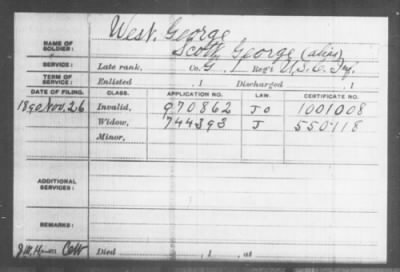 West, George
NAME OF SOLDIER:
Scott, George (alias)
SERVICE: Late rank, Co. G, 1 Reg't U.S.C. Inf.
TERM OF SERVICE: Enlisted , 1 Discharged , 1
DATE OF FILING. CLASS. APPLICATION NO. LAW. CERTIFICATE NO.
1890 Nov. 26 Invalid, 970862 J O 1001008
Widow, 744393 J 550118
Minor,
ADDITIONAL SERVICES:
REMARKS:
Died , 1 , at